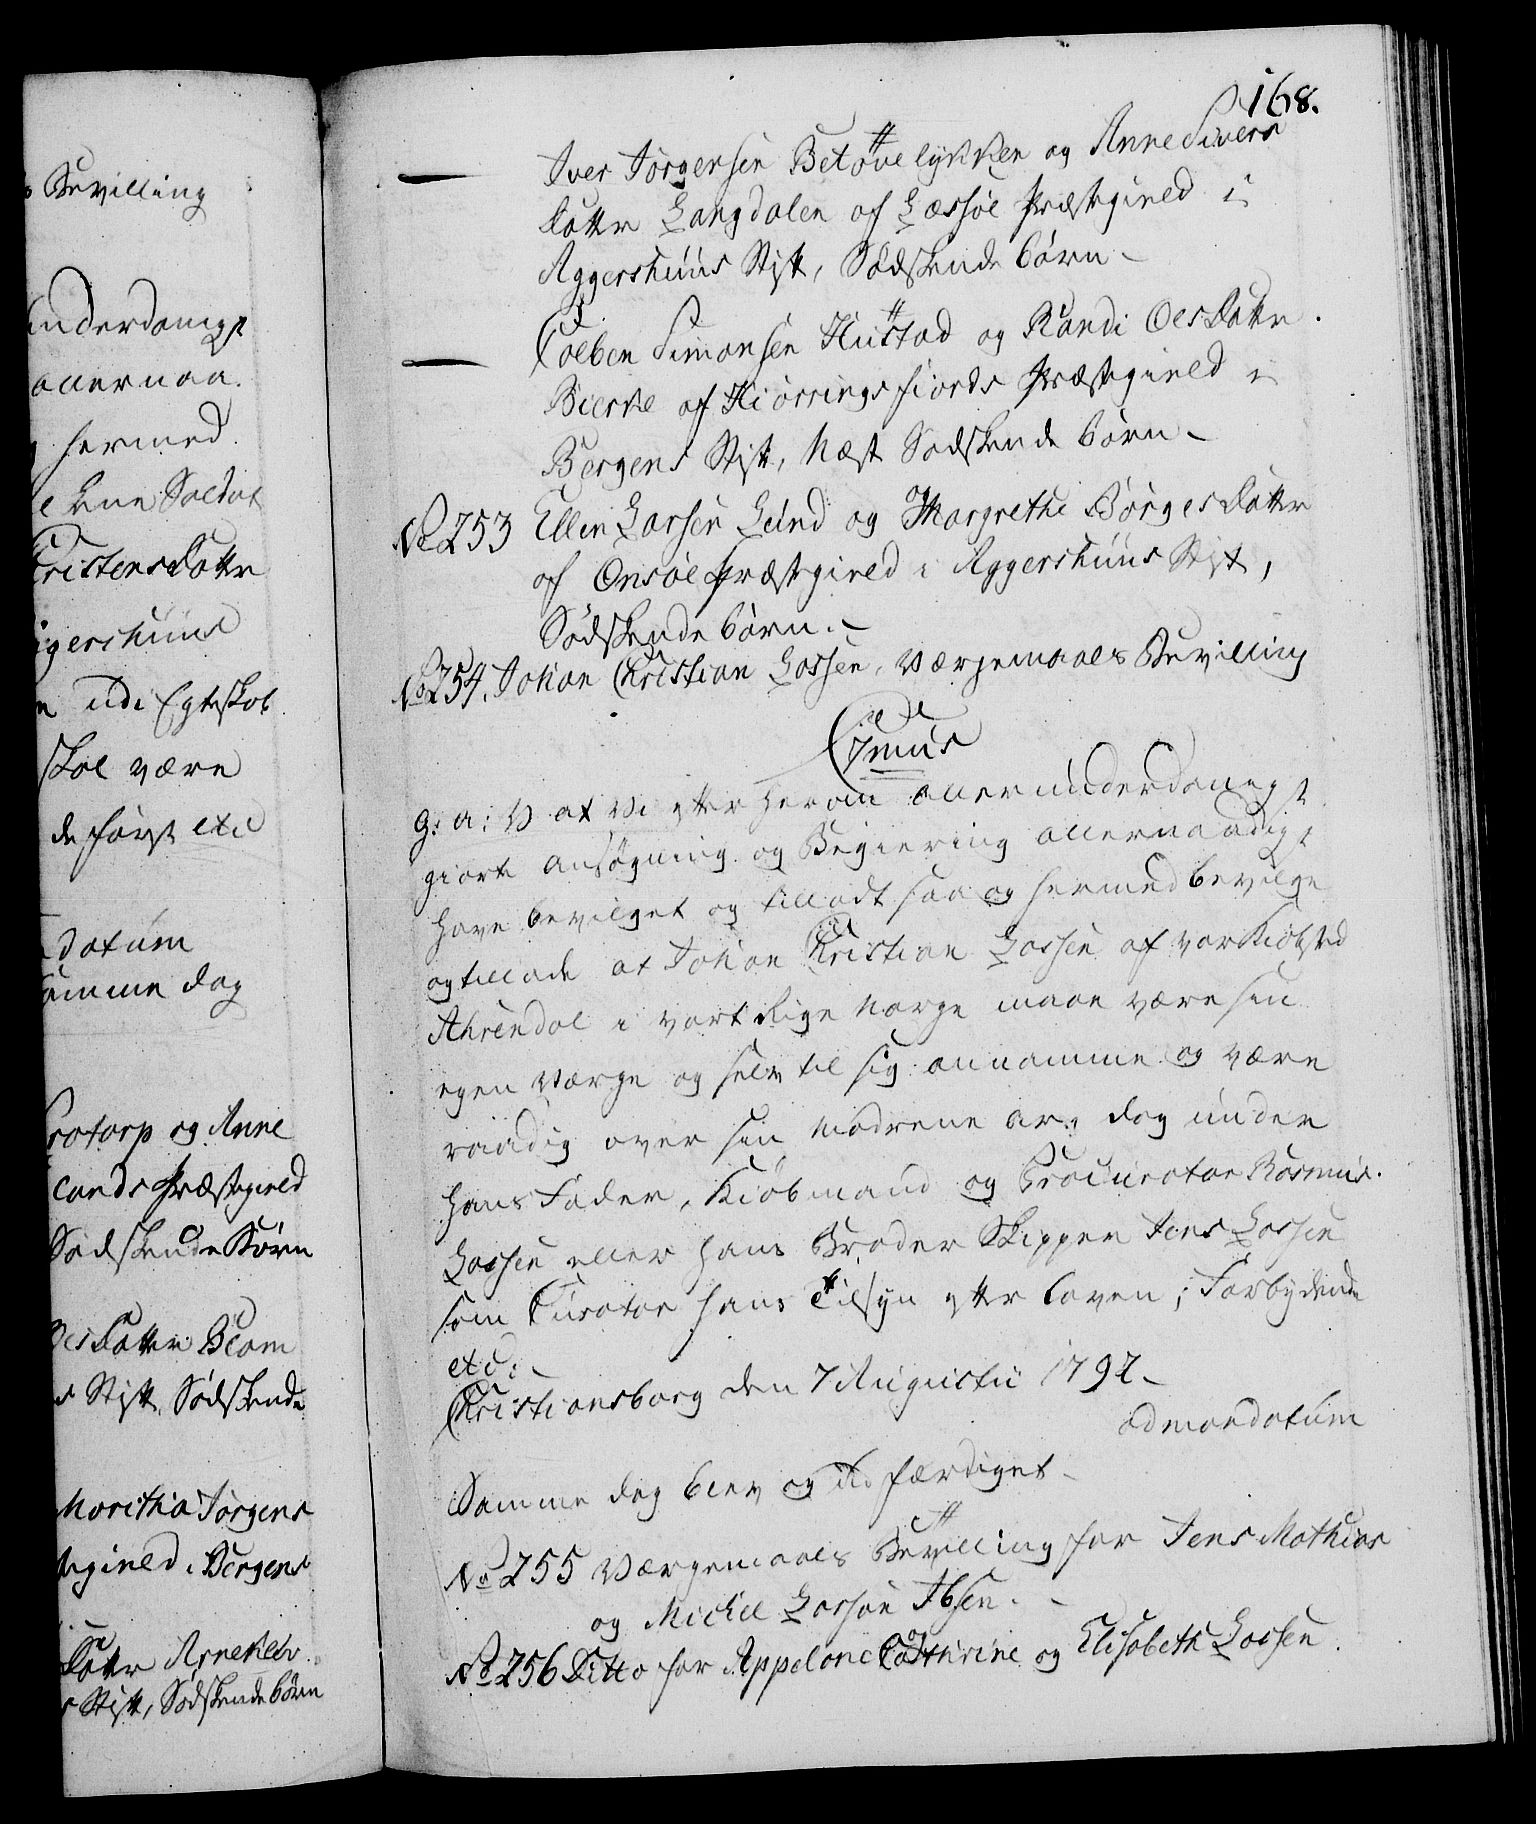 s Bevilling
underdanigst
allernaa.
g hermed
e Ene Soldat
Christens Datter
ggershuus
n udi Egteskab
skal være
de først etc
datum
amme dag
rotorp og Anne
lands Præstegield
Sødskende Børn
Oles Datter Blom
s Stift, Sødskende
Maritha Jørgens
tegield i Bergens
Datter Arneklev
s Stift, Sødskendebørn
168.
— Iver Jørgensen Betøvelykken og Anne Sivers
Datter Langdalen af Læssøe Præstegield i
Aggershuus Stift, Sødskende børn -
— Colben Simonsen Hustad og Randi Oles Datter
Bierke af Hiørringfiords Præstegield i
Bergens Stift, Næst Sødskende børn -
No 253 Ellen Larsen Lund og Margrethe Børges Datter
af Onsøe Præstegield i Aggershuus Stift,
Sødskende børn. -
No 254. Johan Christian Lassen, Værgemaals Bevilling
C 7mus
G: A: V at Vi efter herom allerunderdanigst
giort ansøgning og Begiering allernaadigst
have bevilget og tilladt saa og hermed bevilge
og tillade at Johan Christian Lassen af vor Kiøbsted
Ahrendal i vort Rige Norge maae være sin
egen Værge og selv til sig annamme og være
raadig over sin Mødrene Arv, dog under
hans Fader, Kiøbmand og Procurator Rasmus
Lassen eller hans Broder Skipper Jens Lassen
som Curator hans Tilsyn efter loven; Forbydende
etc: -
Christiansborg den 7 Augustii 1792 -
ad mandatum
Samme dag blev og udfærdiget -
No 255 Værgemaals Bevilling for Jens Mathias
og Michel Larsen Ibsen. -
No 256 Ditto for Appolone Cathrine og Elisabeth Lassen.